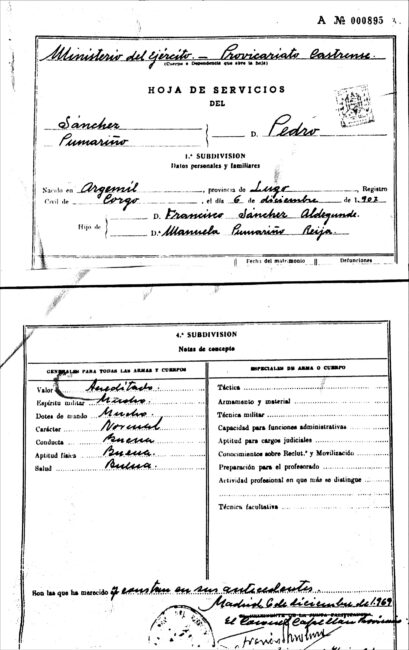 A № 000895
Ministerio del Ejército. — Provicariato Castrense.
(Cuerpo o Dependencia que abre la hoja)
HOJA DE SERVICIOS
DEL
Sánchez
Pumariño
D. Pedro
1.ª SUBDIVISION
Datos personales y familiares
Nacido en Argemil, provincia de Lugo, Registro
Civil de Corgo, el día 6 de diciembre de 1.903
Hijo de
D. Francisco Sánchez Aldegunde.
D.ª Manuela Pumariño Reija.
Fecha del matrimonio
Defunciones
4.ª SUBDIVISION
Notas de concepto
GENERALES PARA TODAS LAS ARMAS Y CUERPOS
ESPECIALES DE ARMA O CUERPO
Valor Acreditado
Espíritu militar Mucho
Dotes de mando Mucho
Carácter Normal
Conducta Buena
Aptitud física Buena
Salud Buena
Táctica
Armamento y material
Técnica militar
Capacidad para funciones administrativas
Aptitud para cargos judiciales
Conocimientos sobre Reclut.ª y Movilización
Preparación para el profesorado
Actividad profesional en que más se distingue
Técnica facultativa
Son las que ha merecido y constan en sus antecedentes.
Madrid, 6 de diciembre de 1.969
El Coronel Capellán